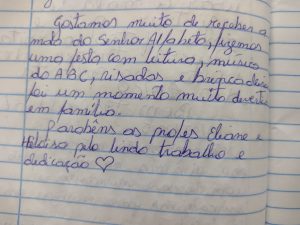 Gostamos muito de receber a
mala do Senhor Alfabeto, fizemos
uma festa com leitura, música
do ABC, risadas e brincadeira
foi um momento muito divertido
em família.
Parabéns as profes Eliane e
Heloisa pelo lindo trabalho e
dedicação ♡